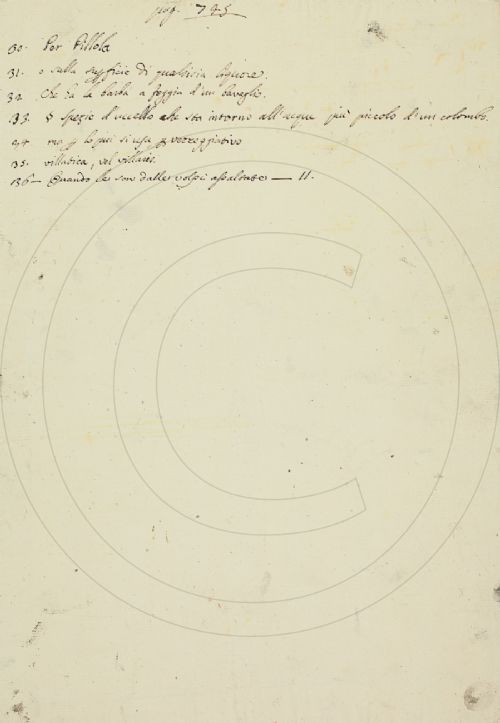 pag. 795
30. Per Pillola
31. o sulla superficie di qualsisia liquore.
32. Che ha la barba a foggia d'un bavaglio.
33. S spezie d'uccello che sta intorno all'acqua più piccolo d'un colombo.
34 mo p lo più si usa p vezzeggiativo
35. villatica, val villatici.
136 — Quando le son dalle volpi assaltate — 11.